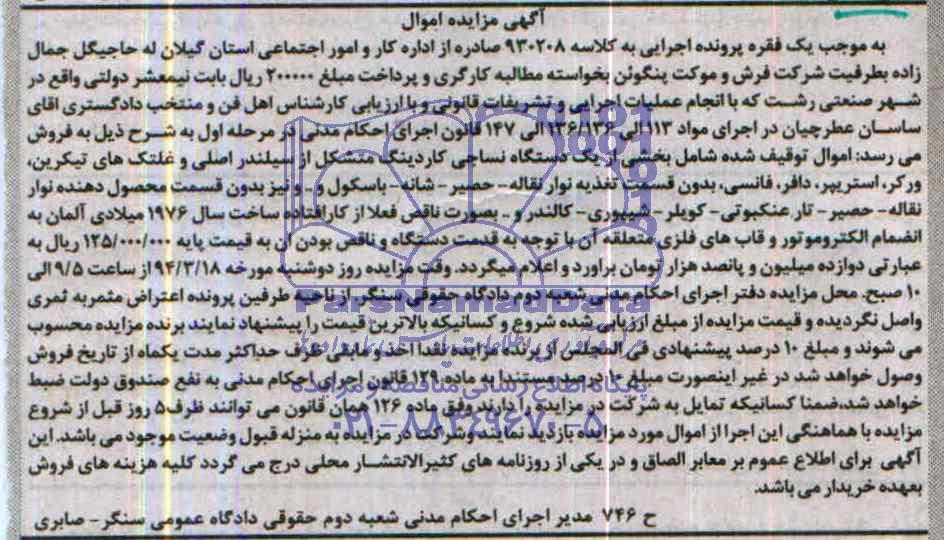 آگهی مزایده اموال
به موجب یک فقره پرونده اجرایی به کلاسه ۹۳۰۲۰۸ صادره از اداره کار و امور اجتماعی استان گیلان له حاجیگل جمال
زاده بطرفیت شرکت فرش و موکت پنگوئن بخواسته مطالبه کارگری و پرداخت مبلغ ۲۰۰۰۰۰ ریال بابت نیمعشر دولتی واقع در
شهر صنعتی رشت که با انجام عملیات اجرایی و تشریفات قانونی و با ارزیابی کارشناس اهل فن و منتخب دادگستری اقای
ساسان عطرچیان در اجرای مواد ۱۱۳ الی ۱۳۶/۱۲۶ الی ۱۴۷ قانون اجرای احکام مدنی در مرحله اول به شرح ذیل به فروش
می رسد: اموال توقیف شده شامل بخشی از یک دستگاه نساجی کاردینگ متشکل از سیلندر اصلی و غلتک های تیکرین،
ورکر، استریپر، دافر، فانسی، بدون قسمت تغذیه نوار نقاله- حصیر- شانه- باسکول و .. و نیز بدون قسمت محصول دهنده نوار
نقاله- حصیر- تار عنکبوتی- کویلر- شیپوری- کالندر و .. بصورت ناقص فعلا از کارافتاده ساخت سال ۱۹۷۶ میلادی آلمان به
انضمام الکتروموتور و قاب های فلزی متعلقه آن با توجه به قدمت دستگاه و ناقص بودن آن به قیمت پایه ۱۲۵/۰۰۰/۰۰۰ ریال به
عبارتی دوازده میلیون و پانصد هزار تومان براورد و اعلام میگردد. وقت مزایده روز دوشنبه مورخه ۹۴/۳/۱۸ از ساعت ۹/۵ الی
۱۰ صبح. محل مزایده دفتر اجرای احکام مدنی شعبه دوم دادگاه حقوقی سنگر. از ناحیه طرفین پرونده اعتراض مثمربه ثمری
واصل نگردیده و قیمت مزایده از مبلغ ارزیابی شده شروع و کسانیکه بالاترین قیمت را پیشنهاد نمایند برنده مزایده محسوب
می شوند و مبلغ ۱۰ درصد پیشنهادی فی المجلس از برنده مزایده نقدا اخذ و مابقی ظرف حداکثر مدت یکماه از تاریخ فروش
وصول خواهد شد در غیر اینصورت مبلغ ۱۰ درصد مستندا بر ماده ۱۲۹ قانون اجرای احکام مدنی به نفع صندوق دولت ضبط
خواهد شد، ضمنا کسانیکه تمایل به شرکت در مزایده را دارند وفق ماده ۱۲۶ همان قانون می توانند ظرف ۵ روز قبل از شروع
مزایده با هماهنگی این اجرا از اموال مورد مزایده بازدید نمایند وشرکت در مزایده به منزله قبول وضعیت موجود می باشد. این
آگهی برای اطلاع عموم بر معابر الصاق و در یکی از روزنامه های کثیرالانتشار محلی درج می گردد کلیه هزینه های فروش
بعهده خریدار می باشد.
ح ۷۴۶ مدیر اجرای احکام مدنی شعبه دوم حقوقی دادگاه عمومی سنگر- صابری
ParsNamadData
پایگاه اطلاع رسانی مناقصه و مزایده
۰۲۱-۸۸۳۴۹۶۷۰-۵